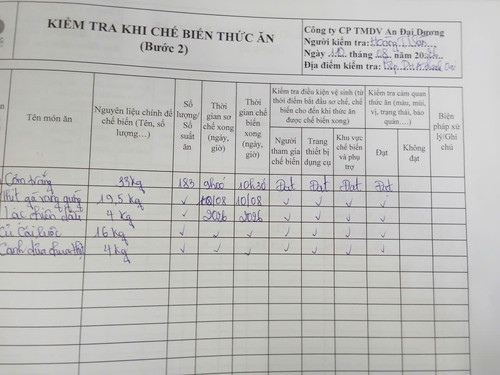 KIỂM TRA KHI CHẾ BIẾN THỨC ĂN
(Bước 2)
Công ty CP TMDV An Đại Dương
Người kiểm tra:
Ngày 10 tháng 08 năm 20
Địa điểm kiểm tra:
Tên món ăn
Nguyên liệu chính để chế biến (Tên, số lượng…)
Số lượng/ Số suất ăn
Thời gian sơ chế xong (ngày, giờ)
Thời gian chế biến xong (ngày, giờ)
Kiểm tra điều kiện vệ sinh (từ thời điểm bắt đầu sơ chế, chế biến cho đến khi thức ăn được chế biến xong)
Người tham gia chế biến
Trang thiết bị dụng cụ
Khu vực chế biến và phụ trợ
Kiểm tra cảm quan thức ăn (màu, mùi, vị, trạng thái, bảo quản….)
Đạt
Không đạt
Biện pháp xử lý/Ghi chú
Cơm trắng 33kg 183 9h00 10h30 Đạt Đạt Đạt Đạt
thịt gà rang gừng 19,5 kg ✓ 10/08 10/08 ✓ ✓ ✓ ✓
Lạc chiên dầu 4 kg ✓ 2026 2026 ✓ ✓ ✓ ✓
Củ cải luộc 16 kg ✓ ✓ ✓ ✓ ✓ ✓ ✓
Canh dưa chua thịt 4kg ✓ ✓ ✓ ✓ ✓ ✓ ✓